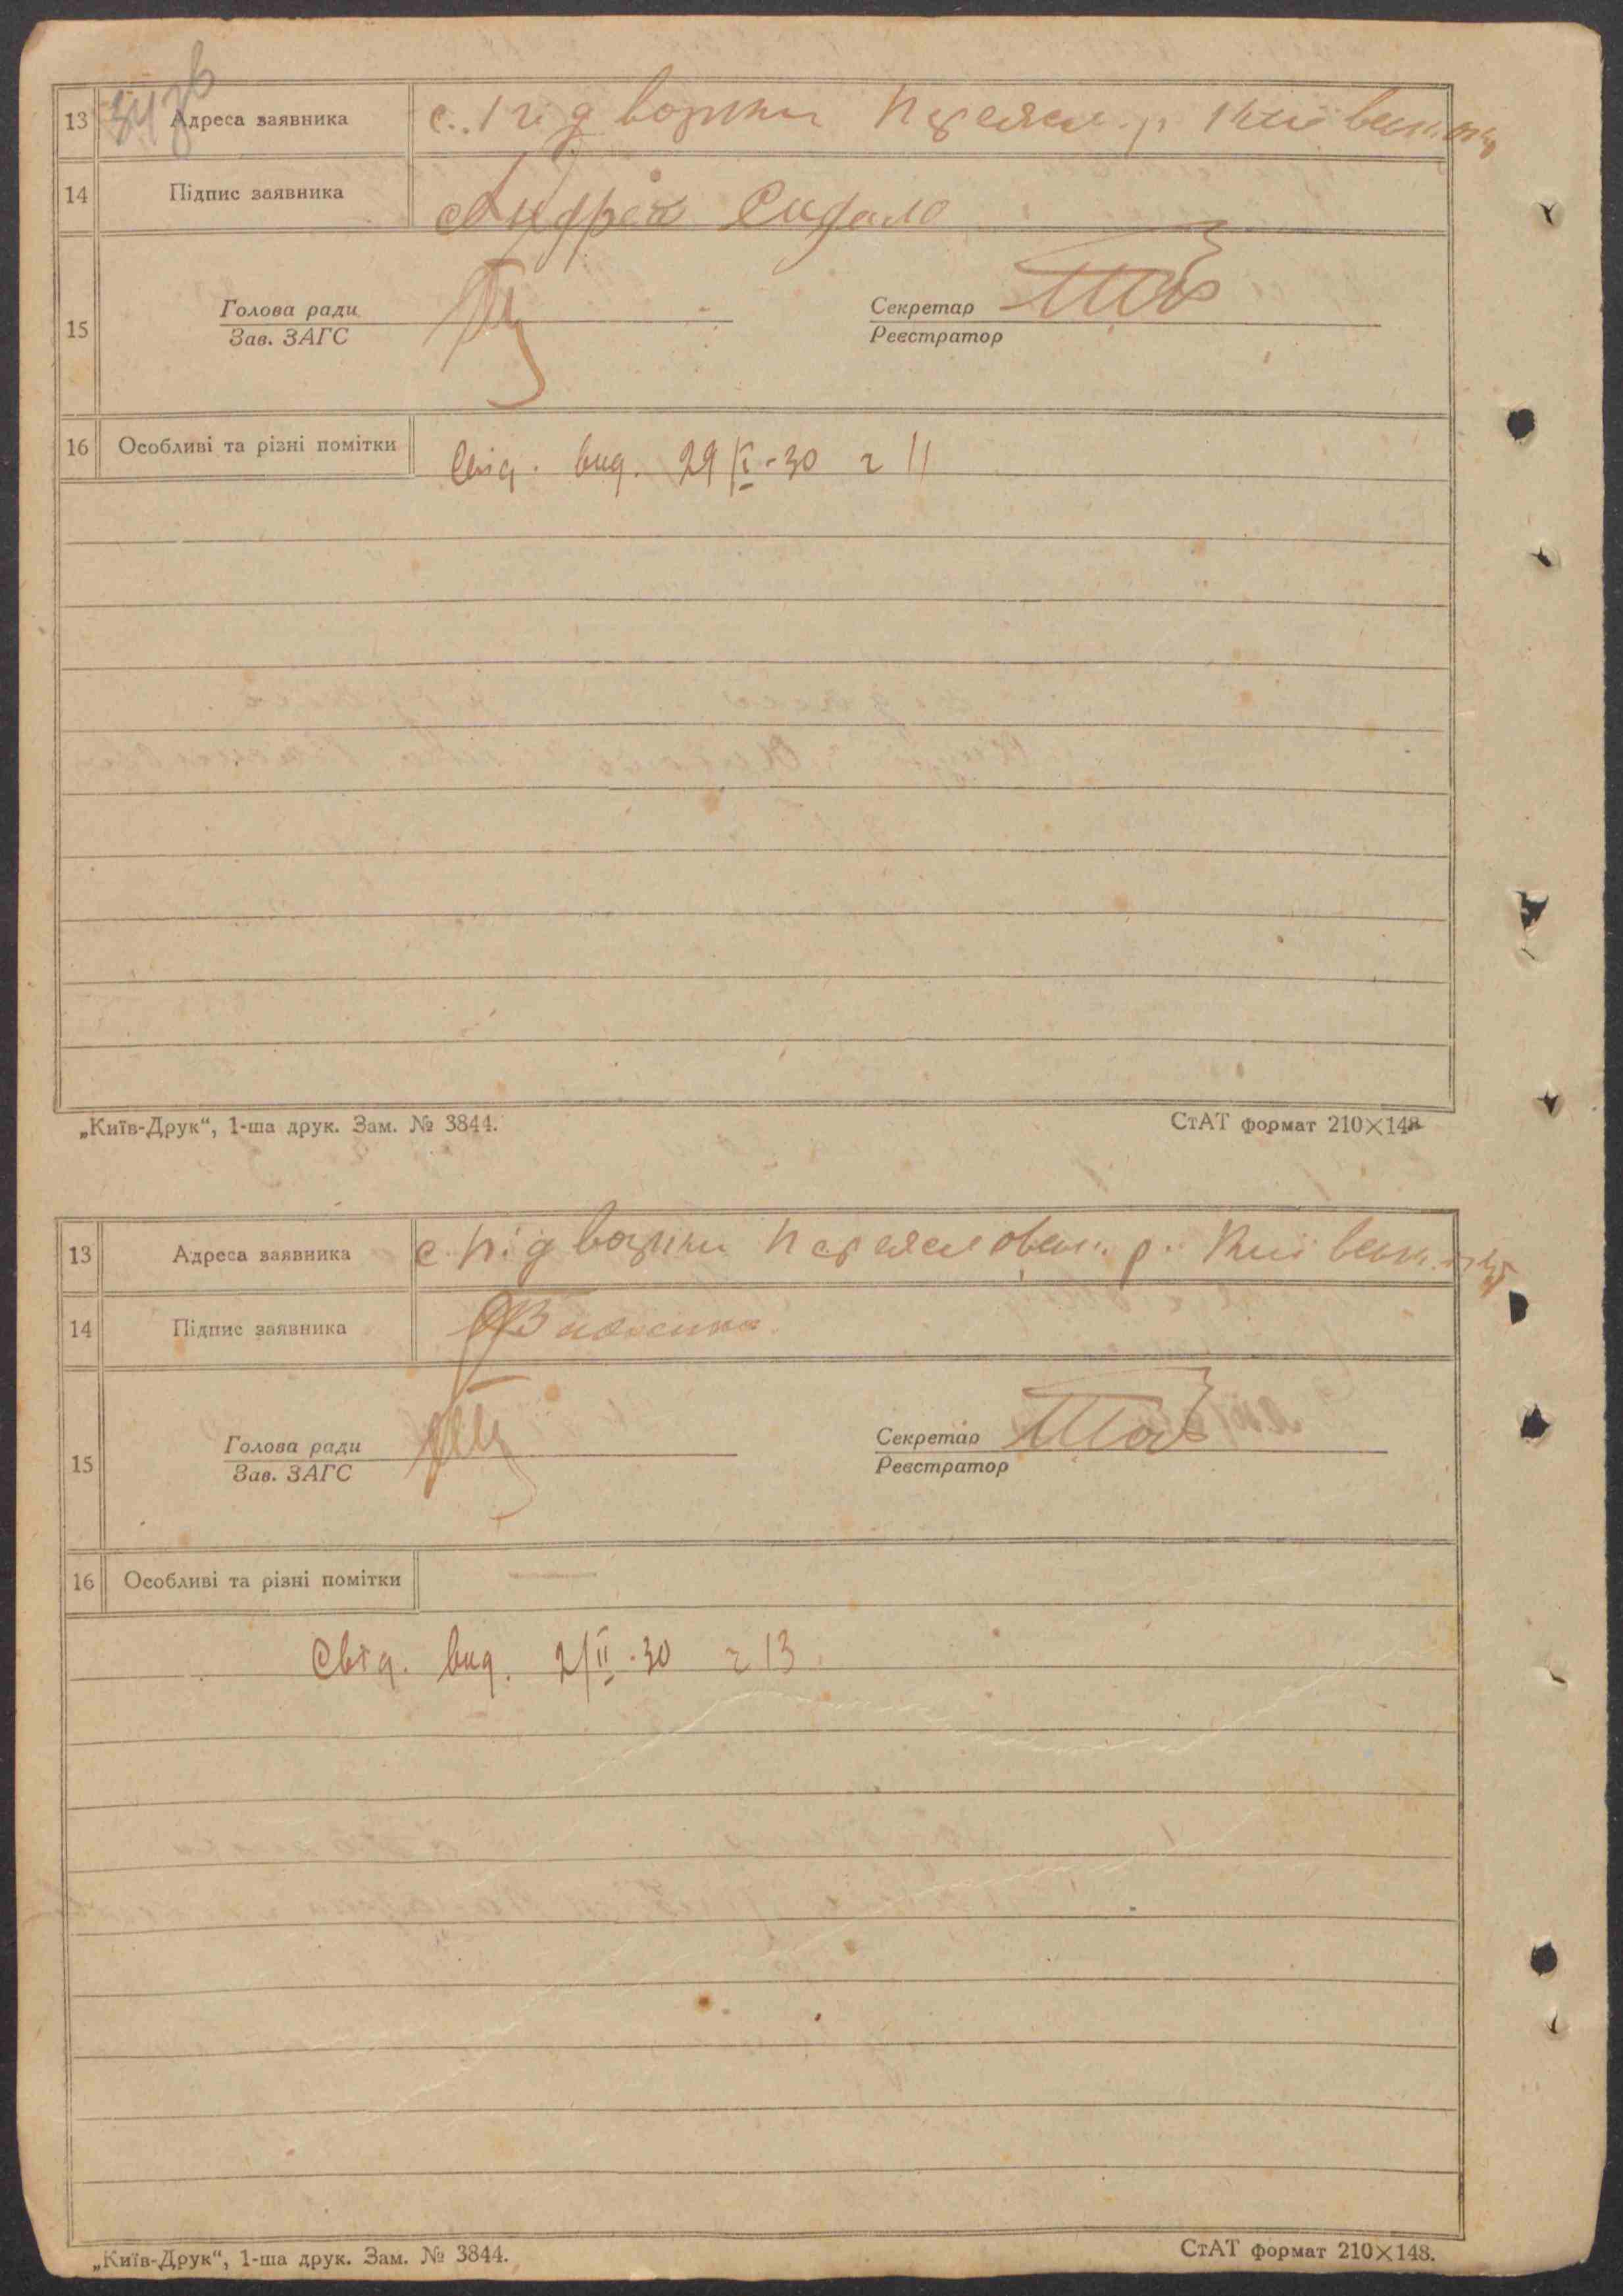 34зв
13 Адреса заявника с. Підворки Переясл. р. Київськ. окр
14 Підпис заявника Андрей Сидало
15 Голова ради Секретар
Зав. ЗАГС Реєстратор
16 Особливі та різні помітки Свід. вид. 29/I-30 г 11
„Київ-Друк“, 1-ша друк. Зам. № 3844. СтАТ формат 210×148
13 Адреса заявника с. Підворки Переясловськ. р. Київськ. окр
14 Підпис заявника
15 Голова ради Секретар
Зав. ЗАГС Реєстратор
16 Особливі та різні помітки —
Свід. вид. 2/II-30 г 13
„Київ-Друк“, 1-ша друк. Зам. № 3844. СтАТ формат 210×148.